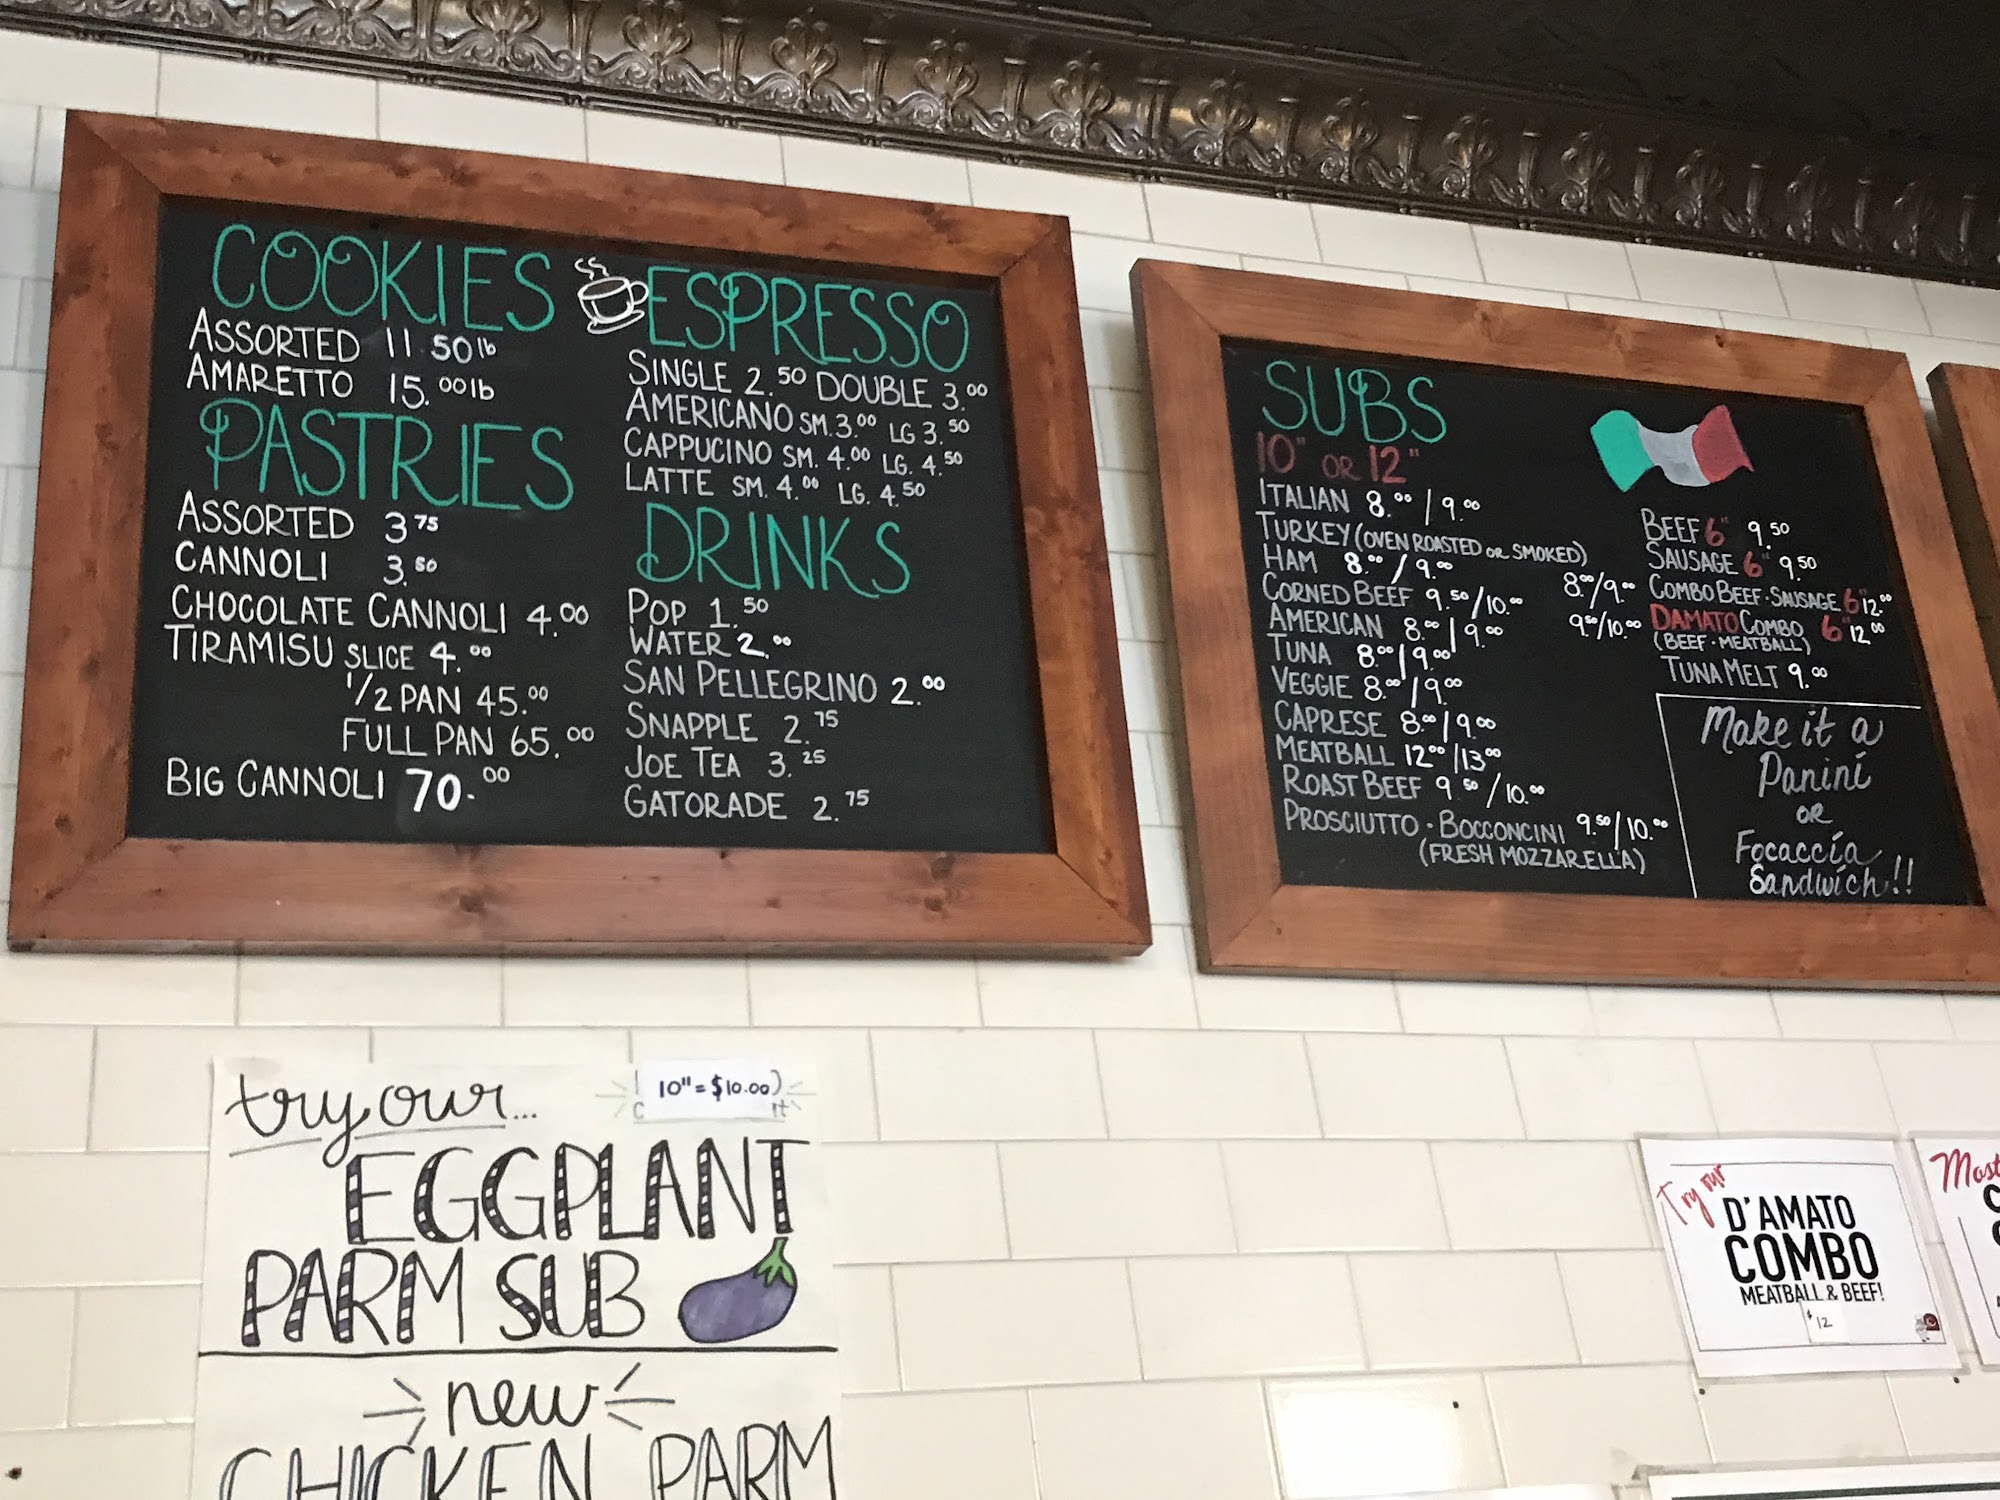 COOKIES
ASSORTED 11.50 lb
AMARETTO 15.00 lb
PASTRIES
ASSORTED 3.75
CANNOLI 3.50
CHOCOLATE CANNOLI 4.00
TIRAMISU SLICE 4.00
1/2 PAN 45.00
FULL PAN 65.00
BIG CANNOLI 70.00
ESPRESSO
SINGLE 2.50 DOUBLE 3.00
AMERICANO SM. 3.00 LG 3.50
CAPPUCINO SM. 4.00 LG. 4.50
LATTE SM. 4.00 LG. 4.50
DRINKS
POP 1.50
WATER 2.00
SAN PELLEGRINO 2.00
SNAPPLE 2.75
JOE TEA 3.25
GATORADE 2.75
SUBS
10" OR 12"
ITALIAN 8.00/9.00
TURKEY (OVEN ROASTED OR SMOKED)
8.00/9.00
HAM 8.00/9.00
CORNED BEEF 9.50/10.00
9.50/10.00
AMERICAN 8.00/9.00
TUNA 8.00/9.00
VEGGIE 8.00/9.00
CAPRESE 8.00/9.00
MEATBALL 12.00/13.00
ROAST BEEF 9.50/10.00
PROSCIUTTO · BOCCONCINI 9.50/10.00
(FRESH MOZZARELLA)
BEEF 6" 9.50
SAUSAGE 6" 9.50
COMBO BEEF·SAUSAGE 6" 12.00
DAMATO COMBO 6" 12.00
(BEEF·MEATBALL)
TUNA MELT 9.00
Make it a
Panini
OR
Focaccia
Sandwich!!
try our...
10"=$10.00)
EGGPLANT
PARM SUB
new
CHICKEN PARM
Try our
D'AMATO
COMBO
MEATBALL & BEEF!
$12